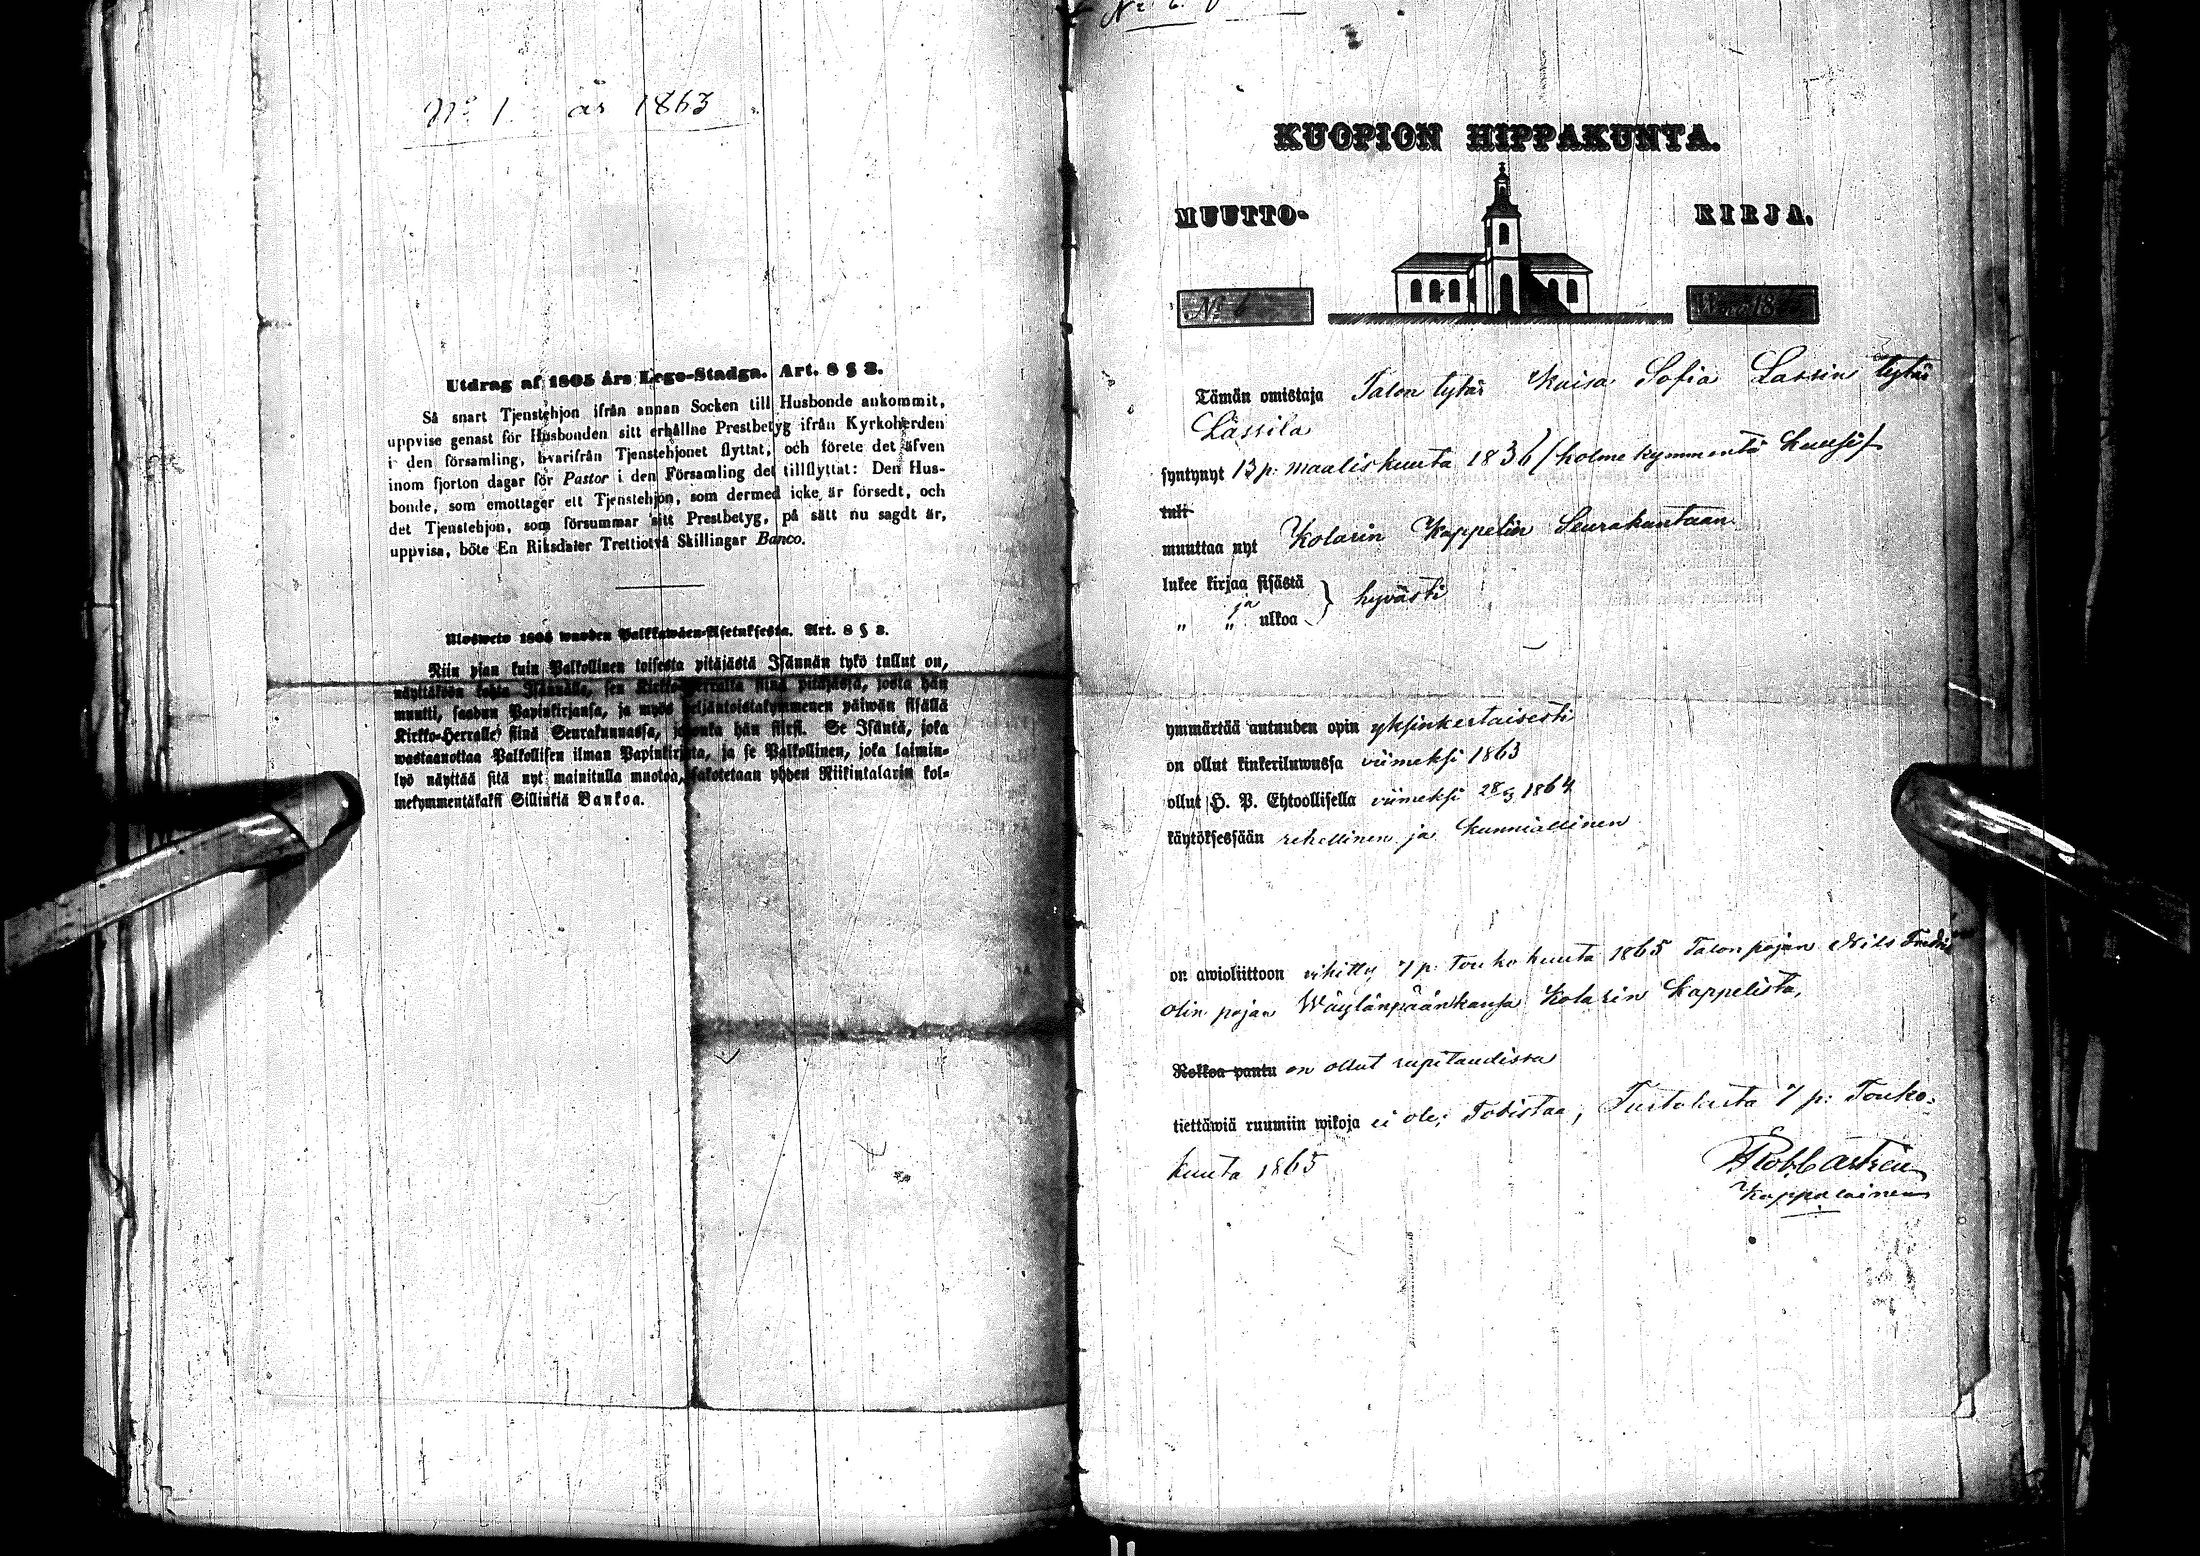 No 1 år 1863
Utdrag af 1805 års Lego-Stadga. Art. 8 § 3.
Så snart Tjenstehjon ifrån annan Socken till Husbonde ankommit,
uppvise genast för Husbonden sitt erhållne Prestbetyg ifrån Kyrkoherden
i den församling, hvarifrån Tjenstehjonet flyttat, och förete det äfven
inom fjorton dagar för Pastor i den Församling det tillflyttat: Den Hus-
bonde, som emottager ett Tjenstehjon, som dermed icke är försedt, och
det Tjenstehjon, som försummar sitt Prestbetyg, på sätt nu sagdt är,
uppvisa, böte En Riksdaler Trettiotvå Skillingar Banco.
Ulosweto 1805 wuoden Palkkawäen-Asetuksesta. Art. 8 § 3.
Niin pian kuin Palkollinen toisesta pitäjästä Isännän tykö tullut on,
näyttäköön kohta Isännälle, sen Kirkko-Herralta siinä pitäjässä, josta hän
muutti, saadun Papinkirjansa, ja myös neljäntoistakymmenen päiwän sisällä
Kirkko-Herralle siinä Seurakunnassa, johonka hän siirsi. Se Isäntä, joka
wastaanottaa Palkollisen ilman Papinkirjata, ja se Palkollinen, joka laimin-
lyö näyttää sitä nyt mainitulla muotoa, sakotetaan yhden Riikintalarin kol-
mekymmentäkaksi Sillinkiä Bankoa.
KUOPION HIPPAKUNTA.
MUUTTO- KIRJA.
No Wna 18
Tämän omistaja Talon tytär Kaisa Sofia Lassin tytär
Lässila
syntynyt 13 p: maaliskuuta 1836 / kolme kymmentä kuusi /
tuli
muuttaa nyt Kolarin Kappelin Seurakuntaan
lukee kirjaa sisästä
„ ja „ ulkoa } hyvästi
ymmärtää autuuden opin yksinkertaisesti
on ollut kinkeriluwussa viimeksi 1863
ollut H. P. Ehtoollisella viimeksi 28/3 1864
käytöksessään rehellinen ja kunniallinen
on awioliittoon vihitty 7 p: Toukokuuta 1865 Talon pojan Nils
Olin pojan Wäylänpäänkansa Kolarin Kappelista,
Rokkoa pantu on ollut rupitaudissa
tiettäwiä ruumiin wikoja ei ole; Todistaa, Turtolasta 7 p: Touko-
kuuta 1865
Kappalainen